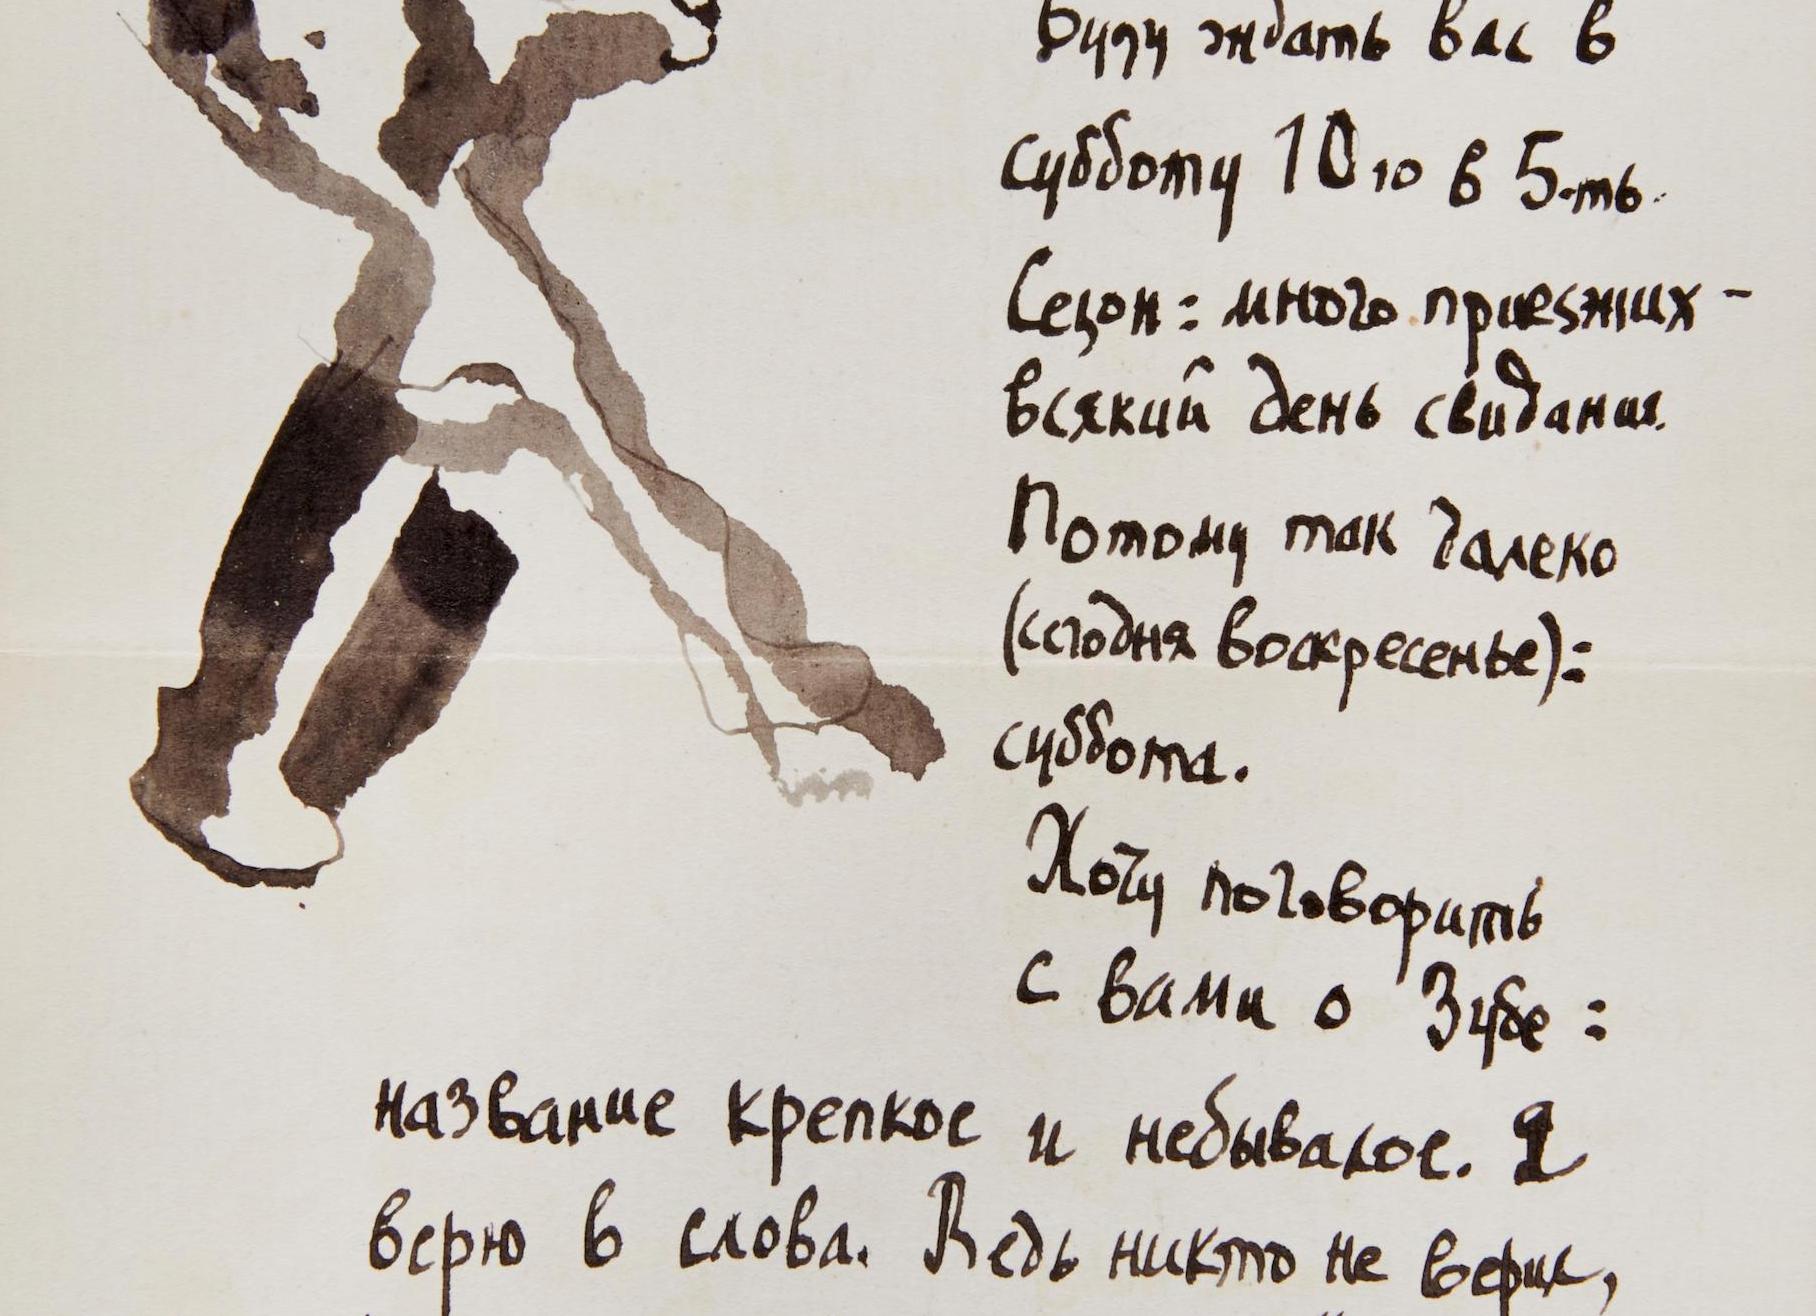 Буду ждать вас в
субботу 10го в 5-ть.
Сезон: много приезжих -
всякий день свидания.
Потому так далеко
(сегодня воскресенье):
суббота.
Хочу поговорить
с вами о Зубе:
название крепкое и небывалое. Я
верю в слова. Ведь никто не верил,